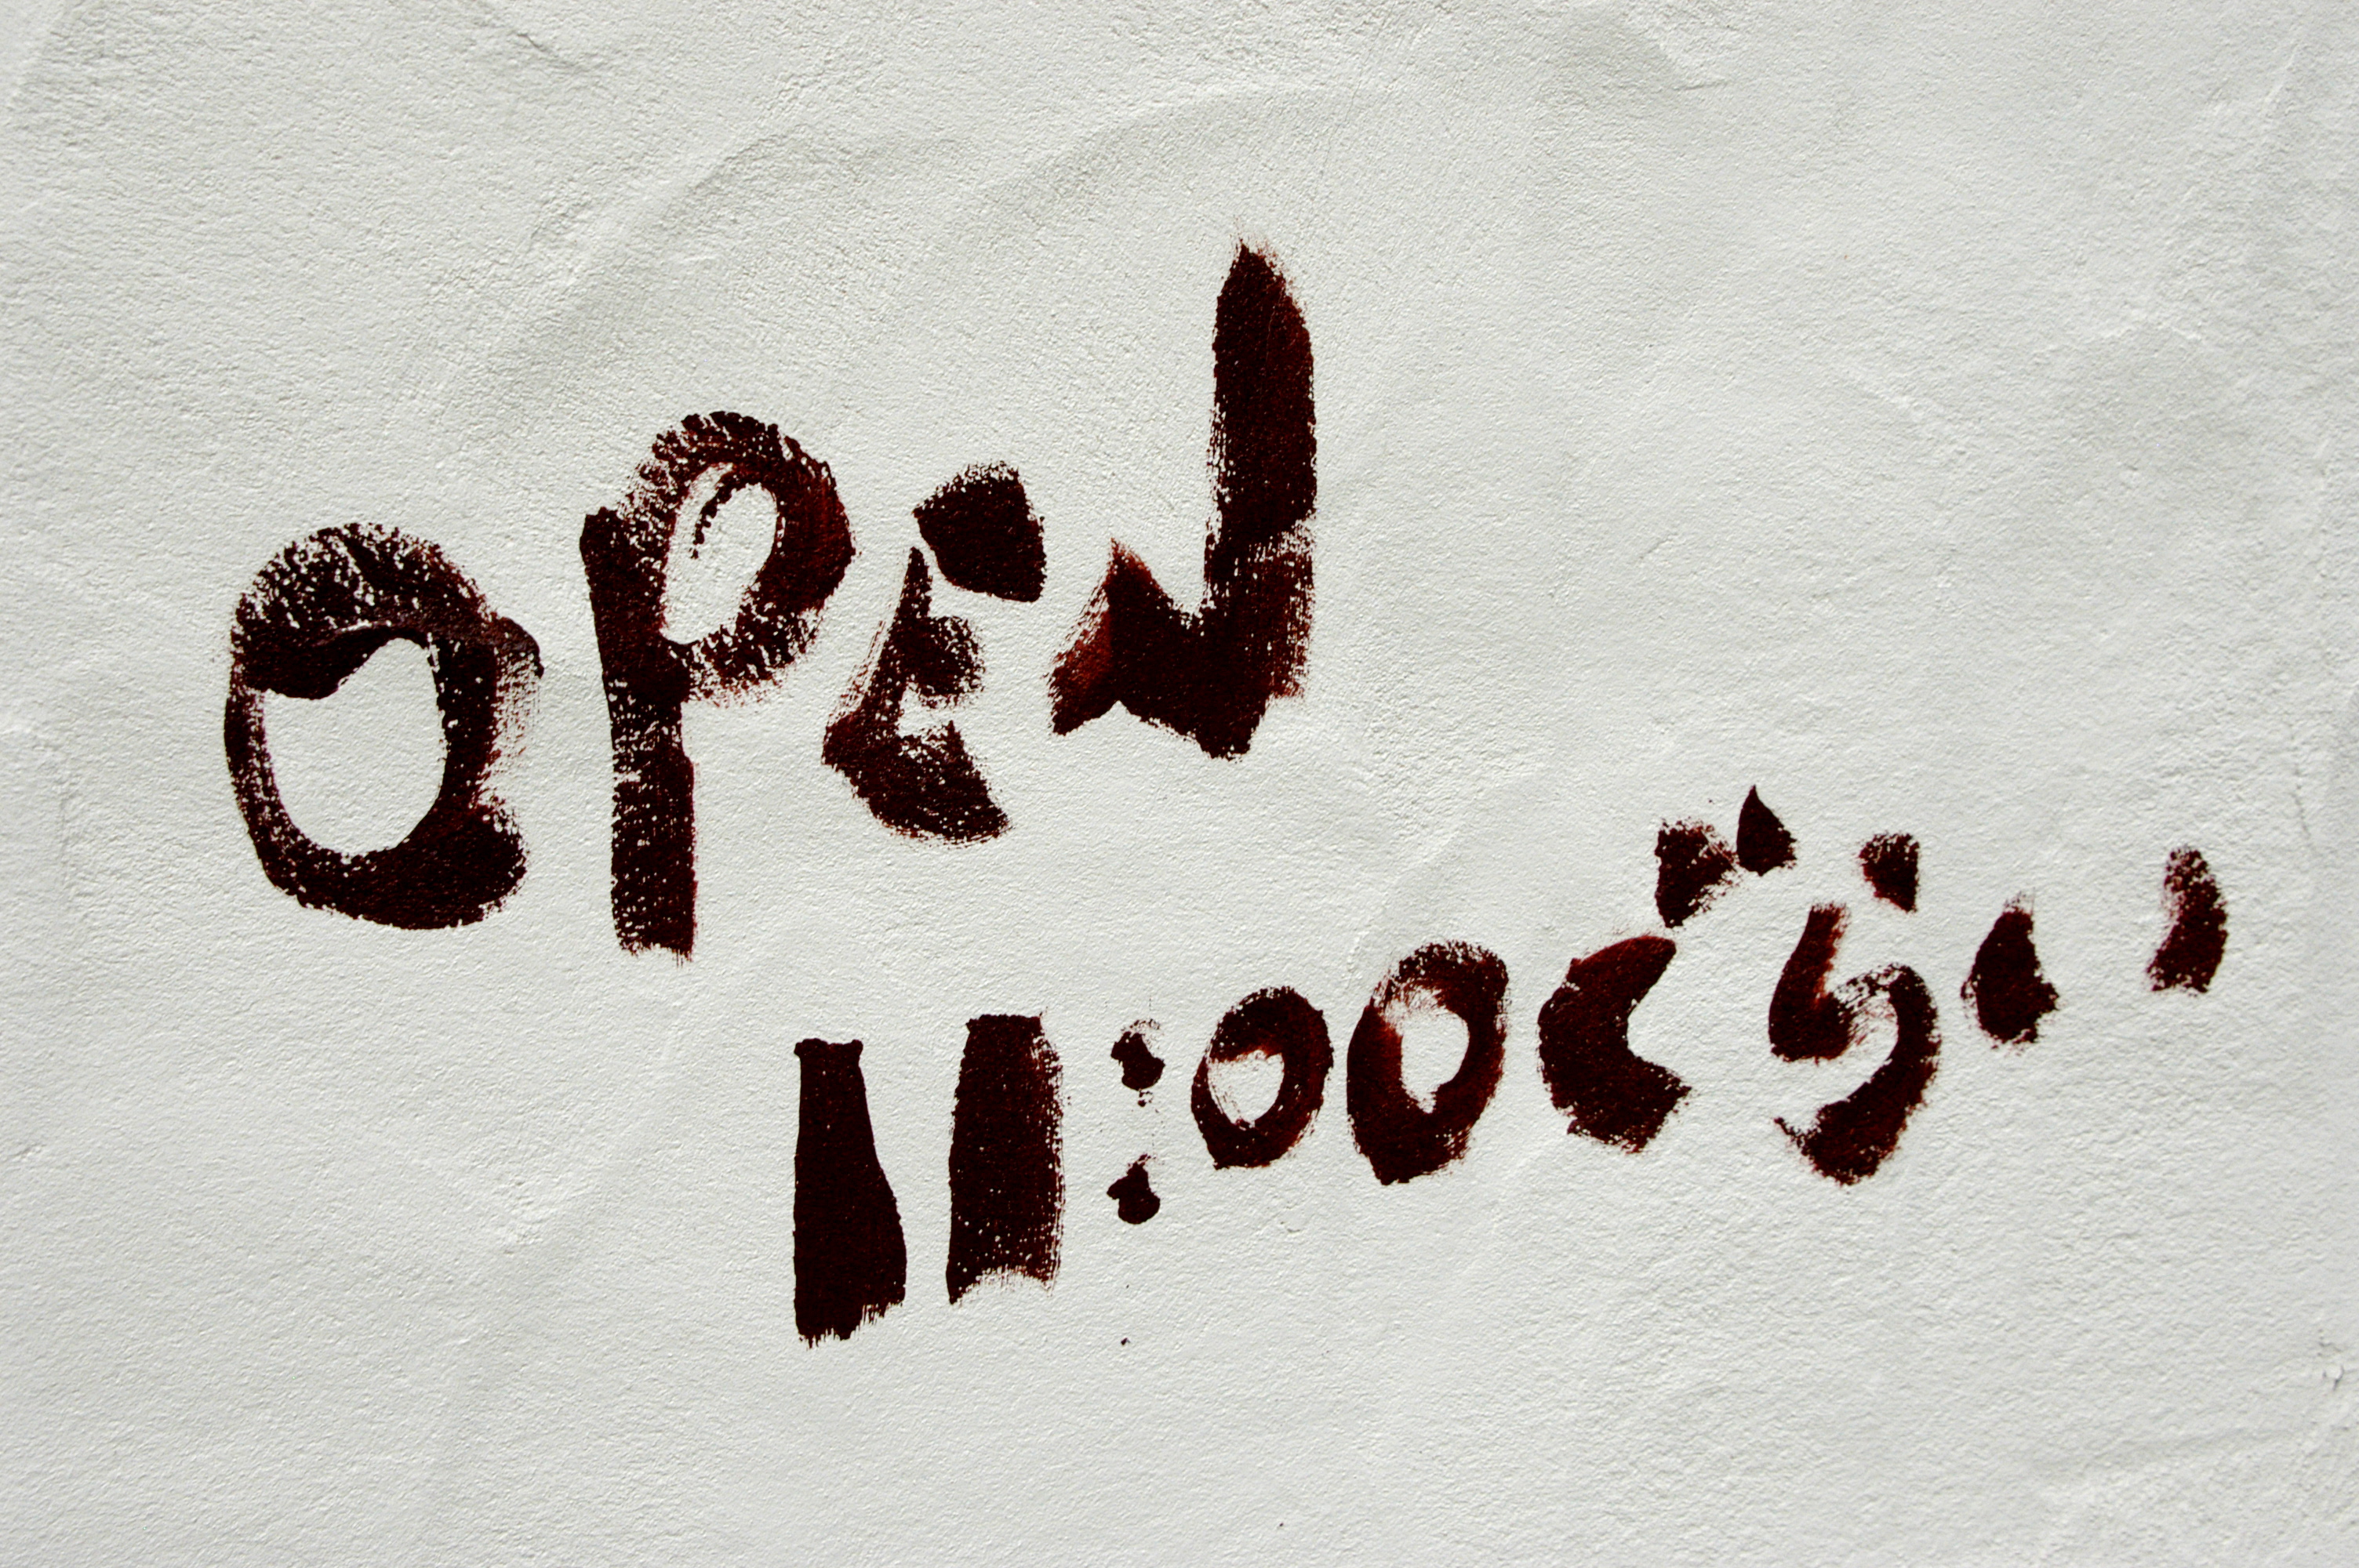 OPEN
11:00